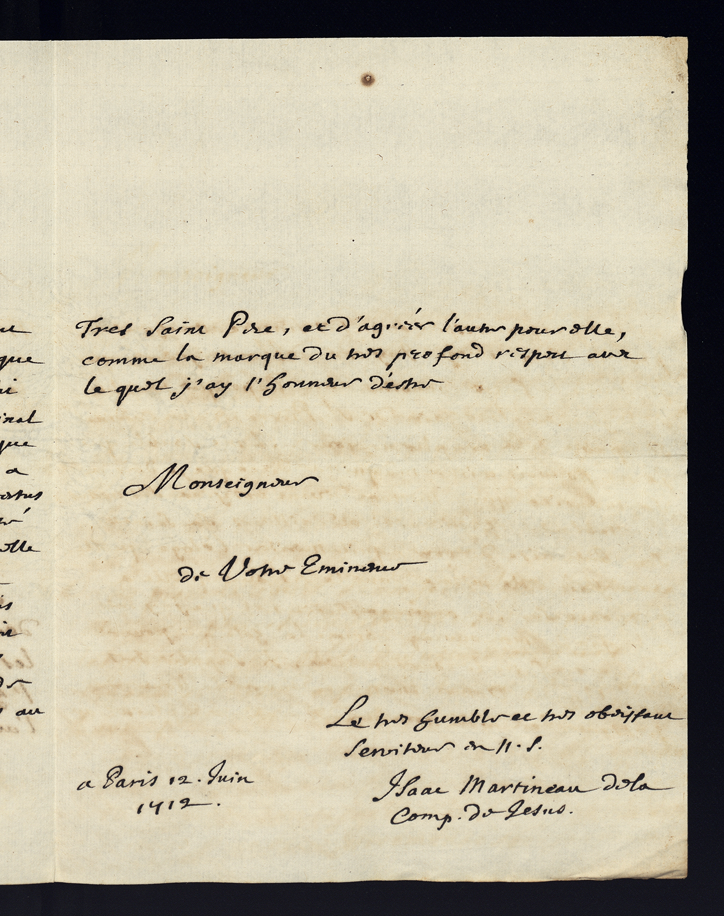 Tres Saint Pere, et d'agréér l'autre pour elle,
comme la marque du tres profond respect avec
le quel j'ay l'honneur d'estre
Monseigneur
de Votre Eminence
Le tres humble et tres obeissant
Serviteur en N. S.
Isaac Martineau de la
Comp. de Jesus.
a Paris 12. Juin
1712.